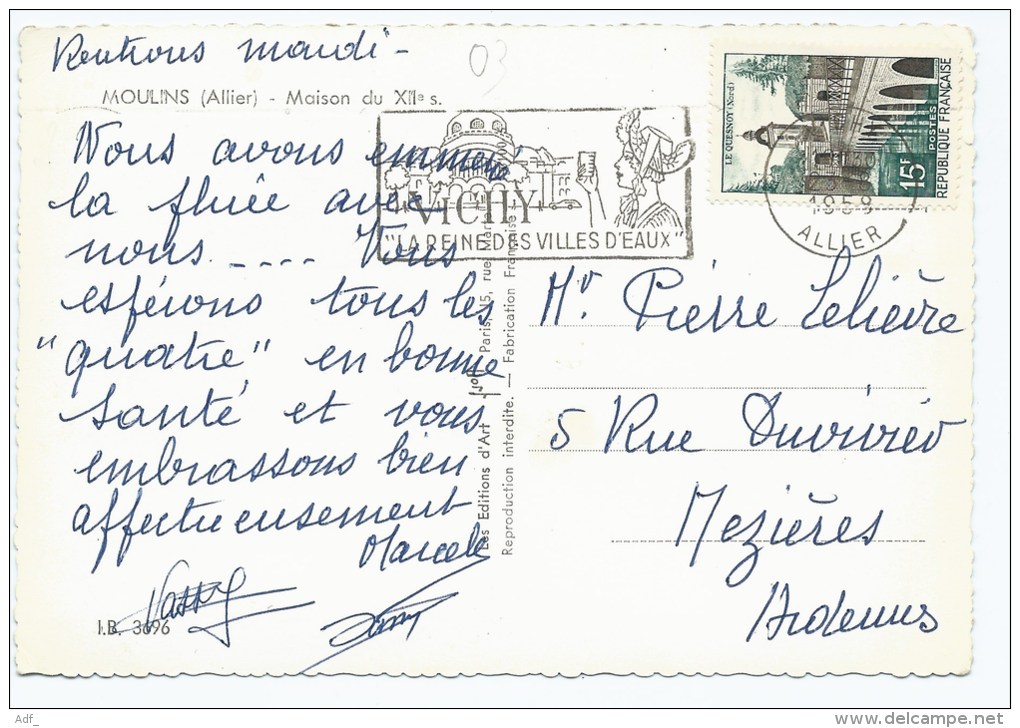 Rentrons mardi -
03
MOULINS (Allier) - Maison du XIIe s.
Nous avons emmené
la pluie avec
nous .... Vous
espérons tous les
"quatre" en bonne
santé et vous
embrassons bien
affectueusement
Marcele
I.B. 3696
VICHY
"LA REINE DES VILLES D'EAUX"
LE QUESNOY (Nord)
15F
POSTES
REPUBLIQUE FRANÇAISE
1959
ALLIER
Les Editions d'Art
Paris, 15, rue Mar
Reproduction interdite. — Fabrication Française
Mr. Pierre Lelièvre
5 Rue Duvivier
Mezières
Ardennes
Adf_
www.delcampe.net